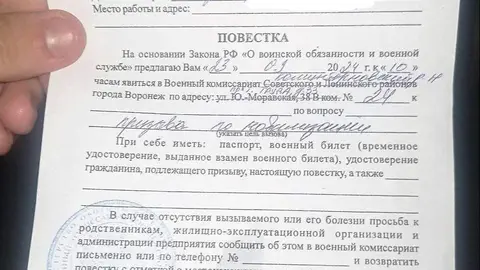 Место работы и адрес:
ПОВЕСТКА
На основании Закона РФ «О воинской обязанности и военной
службе» предлагаю Вам «23 09 2024 г. к «10»
часам явиться в Военный комиссариат Советского и Ленинского районов
города Воронеж по адресу: ул. Ю.-Моравская, 38 В ком. № 24 к
по вопросу
призыва по мобилизации
(указать цель вызова)
При себе иметь: паспорт, военный билет (временное
удостоверение, выданное взамен военного билета), удостоверение
гражданина, подлежащего призыву, настоящую повестку, а также
В случае отсутствия вызываемого или его болезни просьба к
родственникам, жилищно-эксплуатационной организации и
администрации предприятия сообщить об этом в военный комиссариат
письменно или по телефону № и возвратить
повестку с отметкой о